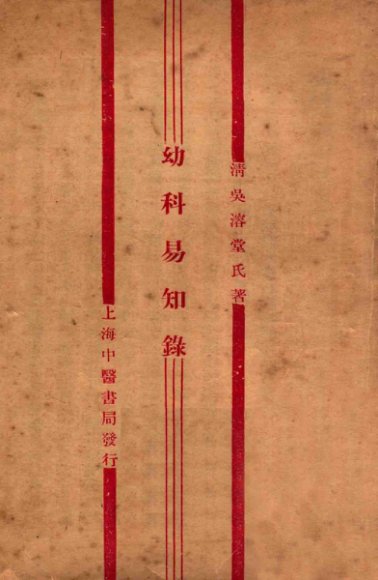 清吳溶堂氏著
幼科易知錄
上海中醫書局發行